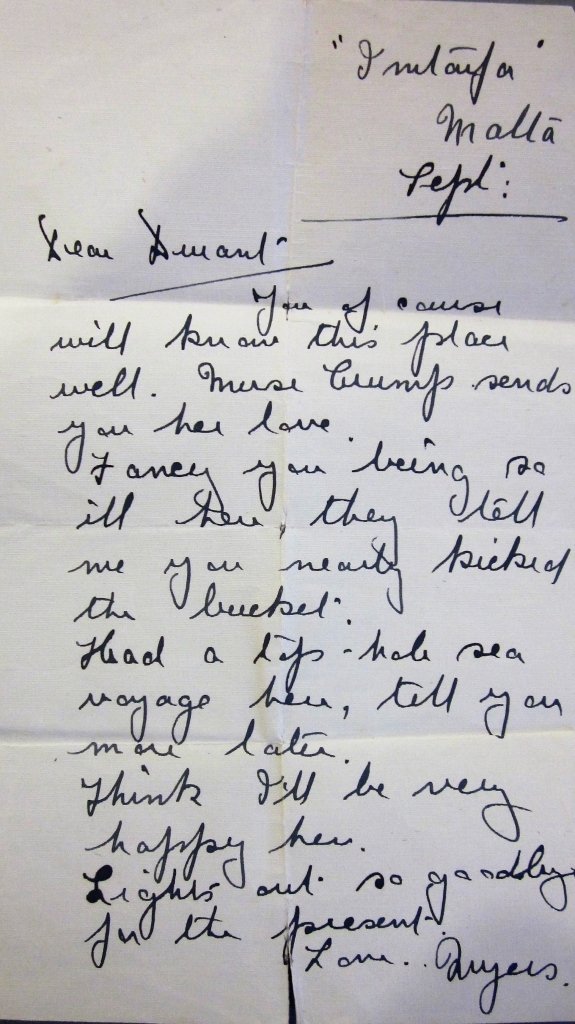 "Imtarfa"
Malta
Sept:
Dear Durant
You of cause
will know this place
well. Nurse Crump sends
you her love.
Fancy you being so
ill here they tell
me you nearly kicked
the bucket.
Had a top-hole sea
voyage here, tell you
more later.
Think I'll be very
happy here.
Lights out so goodbye
for the present.
Love..